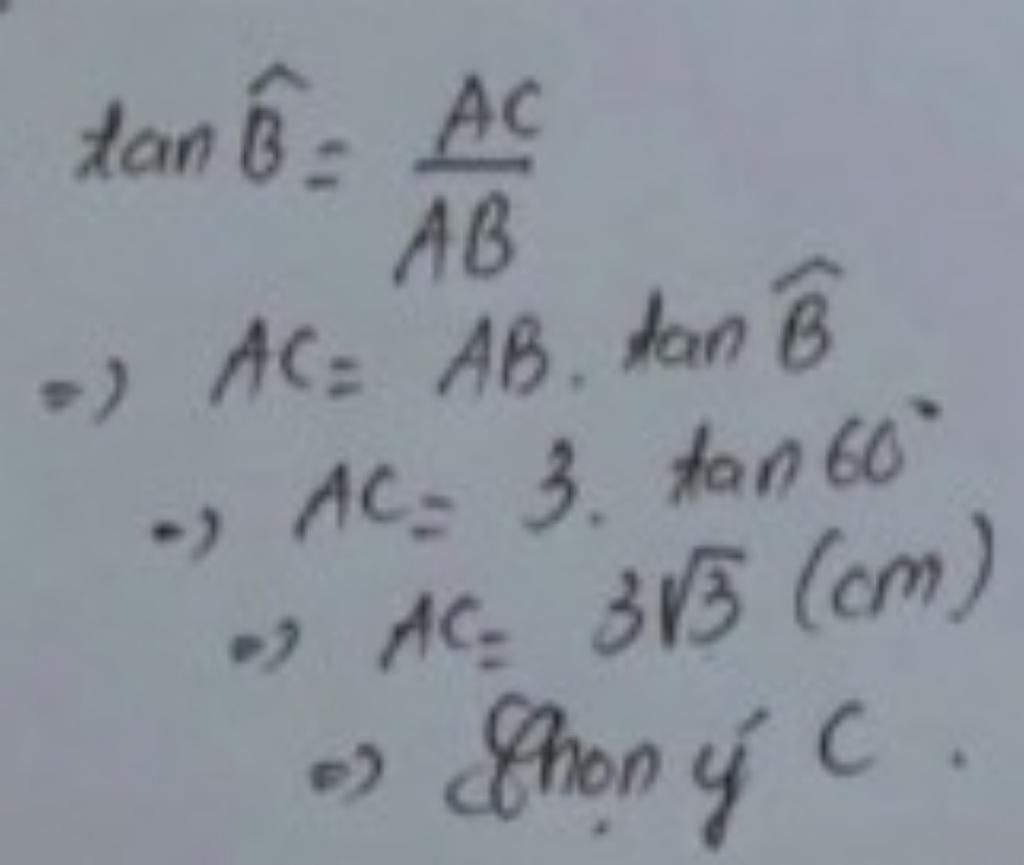 tan B̂ = AC/AB
=) AC = AB . tan B̂
=) AC = 3 . tan 60°
=) AC = 3√3 (cm)
=) Chọn ý C .